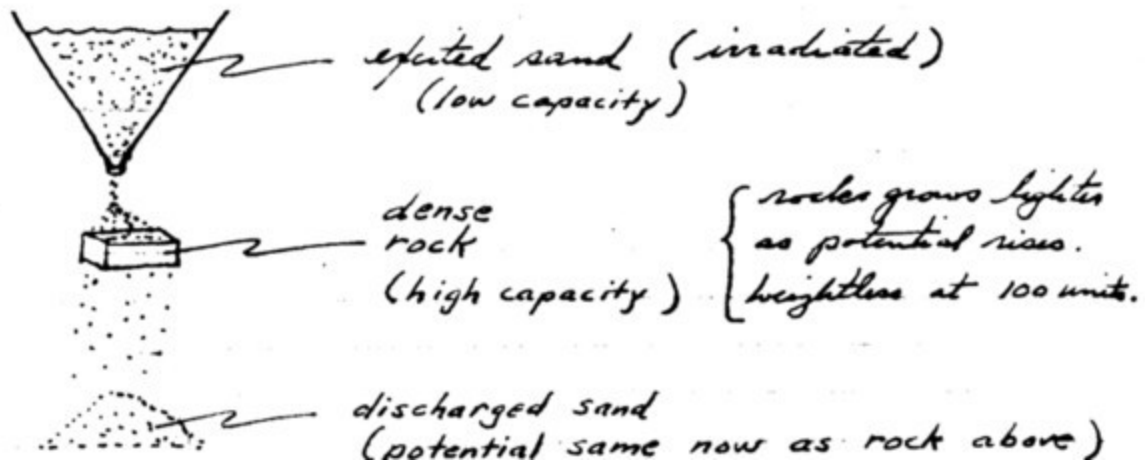 excited sand (irradiated)
(low capacity)
dense
rock
(high capacity)
rocks grows lighter
as potential rises.
Weightless at 100 units.
discharged sand
(potential same now as rock above)